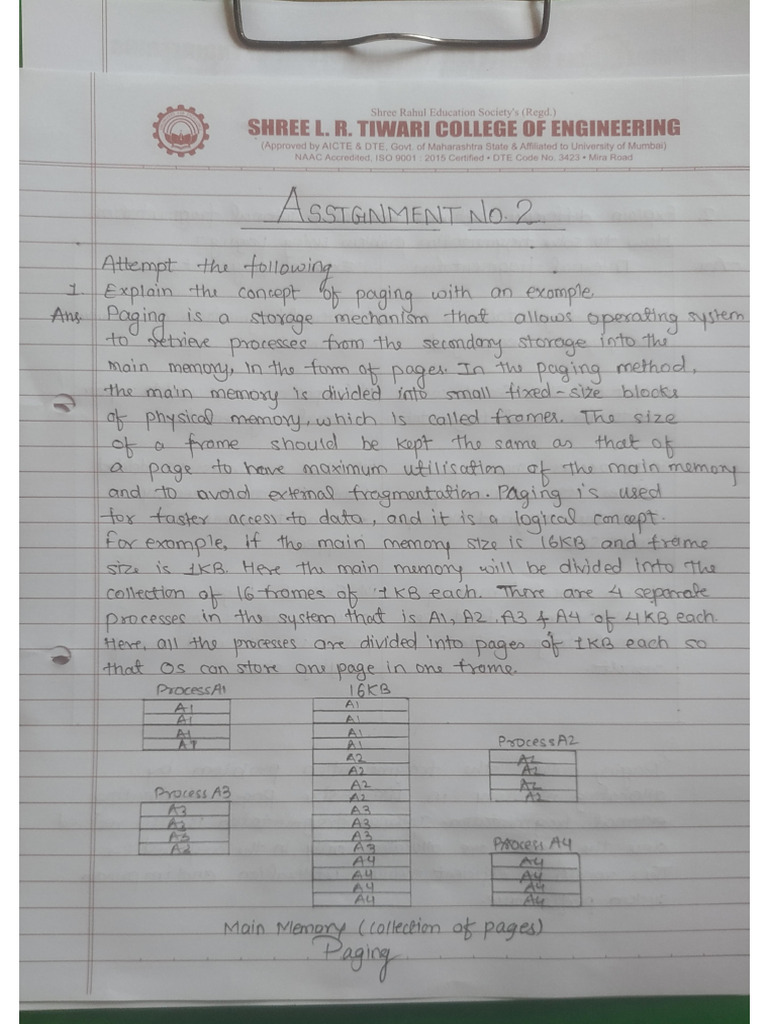 Shree Rahul Education Society's (Regd.)
SHREE L. R. TIWARI COLLEGE OF ENGINEERING
(Approved by AICTE & DTE, Govt. of Maharashtra State & Affiliated to University of Mumbai)
NAAC Accredited, ISO 9001 : 2015 Certified • DTE Code No. 3423 • Mira Road
ASSIGNMENT NO. 2
Attempt the following
1. Explain the concept of paging with an example.
Ans Paging is a storage mechanism that allows operating system
to retrieve processes from the secondary storage into the
main memory, in the form of pages. In the paging method,
the main memory is divided into small fixed-size blocks
of physical memory, which is called frames. The size
of a frame should be kept the same as that of
a page to have maximum utilisation of the main memory
and to avoid external fragmentation. Paging is used
for faster access to data, and it is a logical concept.
For example, if the main memory size is 16KB and frame
size is 1KB. Here the main memory will be divided into the
collection of 16 frames of 1KB each. There are 4 separate
processes in the system that is A1, A2, A3 & A4 of 4KB each.
Here, all the processes are divided into pages of 1KB each so
that OS can store one page in one frame.
Process A1
A1
A1
A1
A1
16KB
A1
A1
A1
A1
A2
A2
A2
A2
A3
A3
A3
A3
A4
A4
A4
A4
Process A2
A2
A2
A2
A2
Process A3
A3
A3
A3
A3
Process A4
A4
A4
A4
A4
Main Memory (collection of pages)
Paging